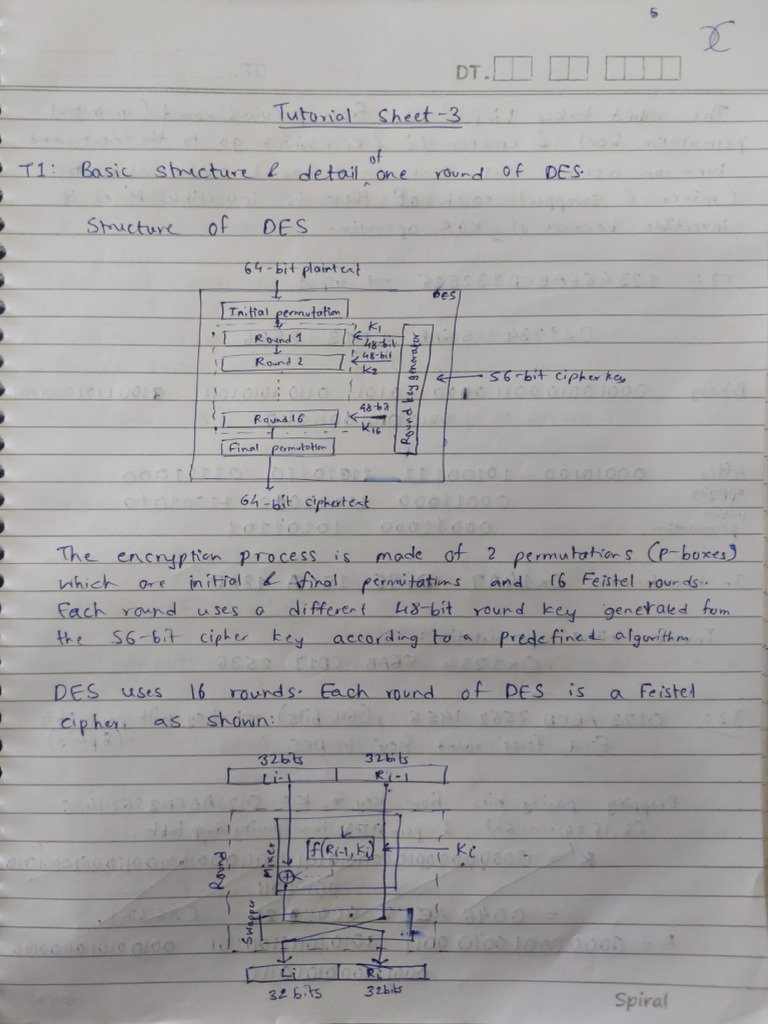 5
DT.
Tutorial Sheet-3
T1: Basic structure & detail of one round of DES.
Structure of DES
64-bit plaintext
DES
Initial permutation
Round 1
K1
48-bit
Round 2
48-bit
K2
Round key generator
56-bit cipher key
Round 16
48-bit
K16
Final permutation
64-bit ciphertext
The encryption process is made of 2 permutations (P-boxes)
which are initial & final permutations and 16 Feistel rounds.
Each round uses a different 48-bit round key generated from
the 56-bit cipher key according to a predefined algorithm
DES uses 16 rounds. Each round of DES is a Feistel
cipher, as shown:
32bits 32bits
Li-1 Ri-1
Round
Mixer
f(Ri-1, Ki)
Ki
Swapper
Li Ri
32 bits 32bits
Spiral